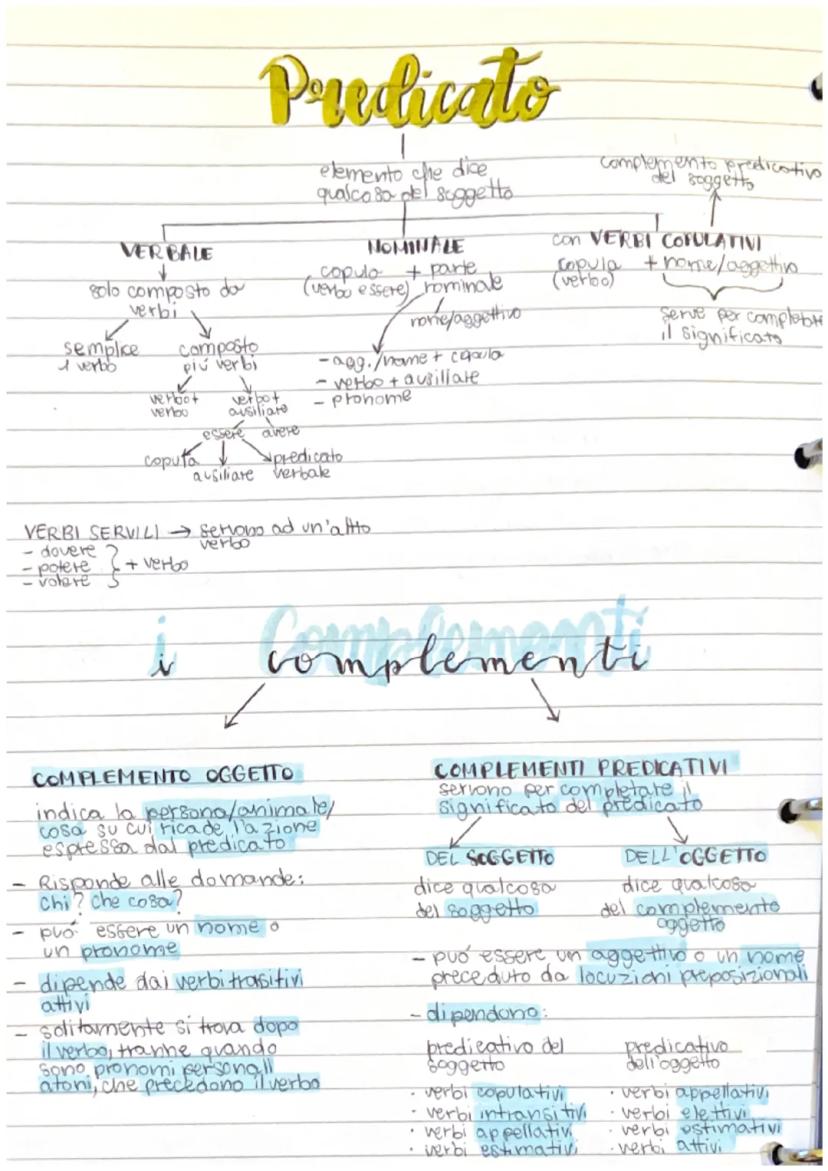 Predicato
elemento che dice
qualcosa del soggetto
complemento predicativo
del soggetto
VERBALE
solo composto da
verbi
semplice
1 verbo
composto
più verbi
verbo+
verbo
verbo+
ausiliare
essere avere
copula
ausiliare
predicato
verbale
NOMINALE
copula + parte
(verbo essere) nominale
nome/aggettivo
- agg./nome + copula
- verbo + ausiliare
- pronome
con VERBI COPULATIVI
copula + nome/aggettivo
(verbo)
serve per completare
il significato
VERBI SERVILI → servono ad un'altro
verbo
- dovere
- potere } + verbo
- volere
i Complementi
i complementi
COMPLEMENTO OGGETTO
indica la persona/animale/
cosa su cui ricade l'azione
espressa dal predicato
- Risponde alle domande:
chi? che cosa?
- può essere un nome o
un pronome
- dipende dai verbi trasitivi
attivi
- solitamente si trova dopo
il verbo, tranne quando
sono pronomi personali
atoni, che precedono il verbo
COMPLEMENTI PREDICATIVI
servono per completare il
significato del predicato
DEL SOGGETTO
dice qualcosa
del soggetto
DELL'OGGETTO
dice qualcosa
del complemento
oggetto
- può essere un aggettivo o un nome
preceduto da locuzioni preposizionali
- dipendono:
predicativo del
soggetto
· verbi copulativi
· verbi intransitivi
· verbi appellativi
· verbi estimativi
predicativo
dell'oggetto
· verbi appellativi
· verbi elettivi
· verbi estimativi
· verbi attivi